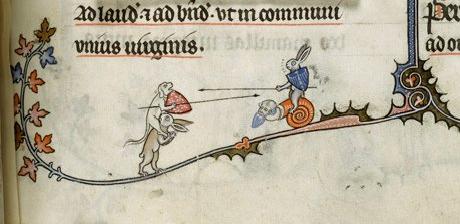 Ad laud' ⁊ ad bñd'. vt in communi
vnius uirginis.
Per
ad o